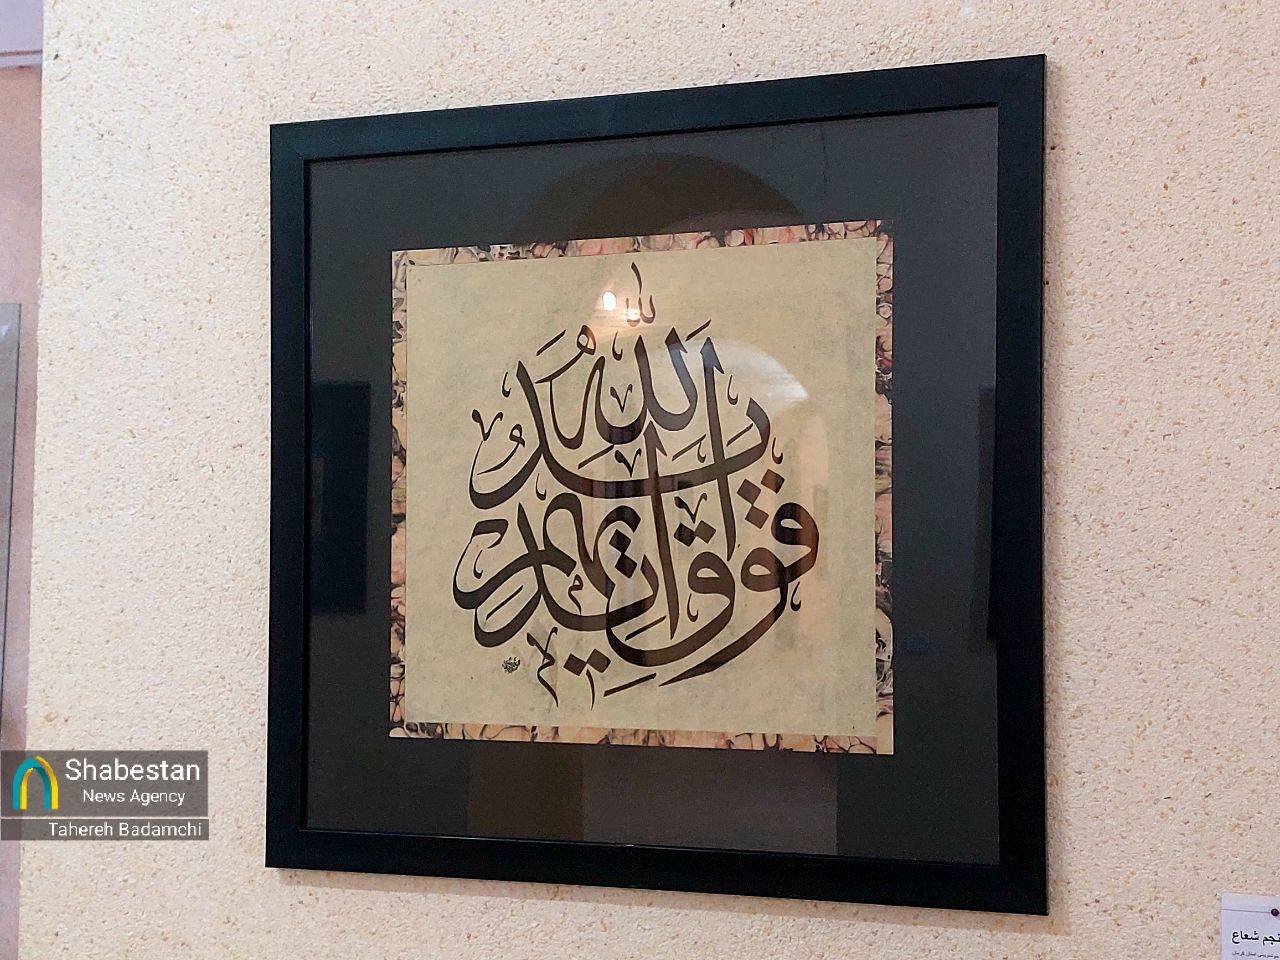 يَدُ اللَّهِ فَوْقَ أَيْدِيهِمْ
Shabestan
News Agency
Tahereh Badamchi
نجم شعاع